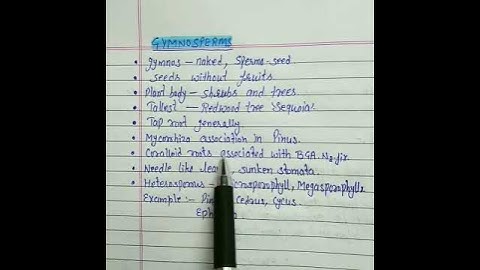 GYMNOSPERMS
• Gymnos - naked, Sperma-seed.
• Seeds without fruits.
• Plant body - shrubs and trees
• Tallest - Redwood tree 'Sequoia'
• Tap root generally
• Mycorrhiza association in Pinus.
• Coralloid roots associated with BGA. N₂-fix.
• Needle like, sunken stomata.
• Heterosporous - Megasporophyll.
Example :- Cedrus, Cycus.